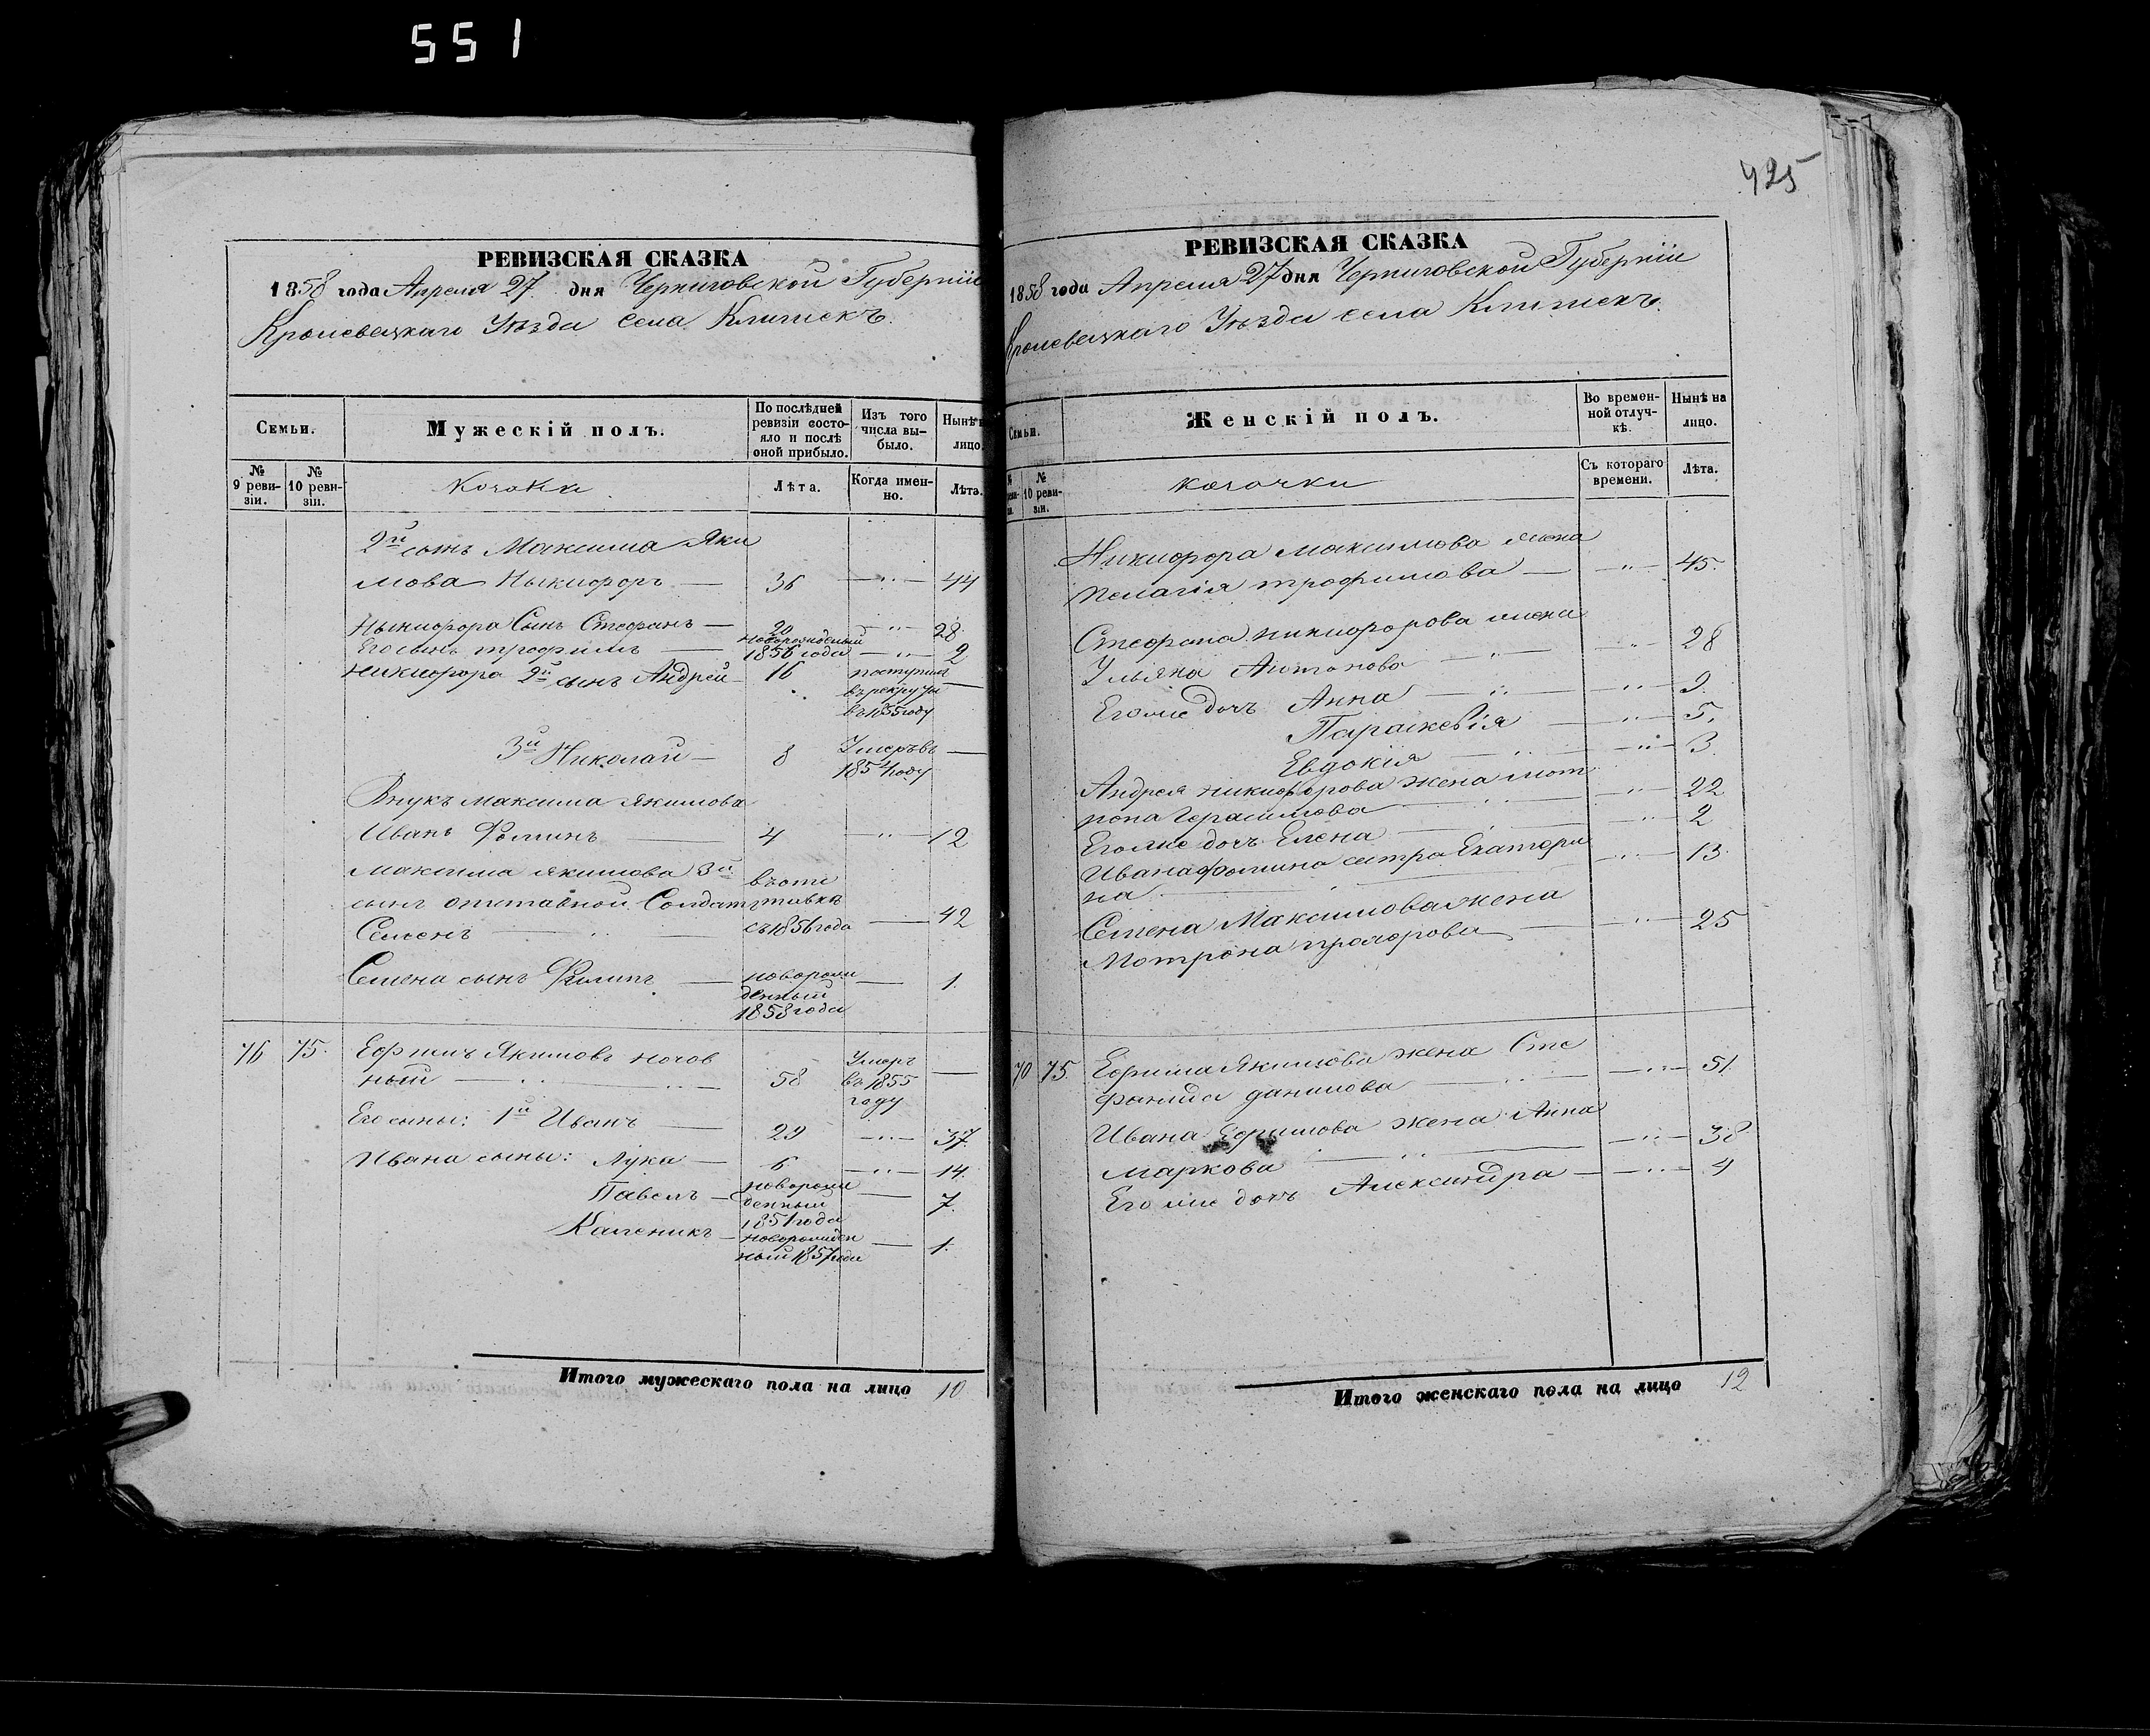 551
425
РЕВИЗСКАЯ СКАЗКА
1858 года Апреля 27 дня Черниговской Губерніи
Кролевецкаго Уѣзда села Клишекъ.
Семьи.
Мужескій полъ.
По послѣдней ревизіи состояло и послѣ оной прибыло.
Изъ того числа выбыло.
Нынѣ
лицо.
№ 9 ревизіи.
№ 10 ревизіи.
Козака
Лѣта.
Когда именно.
Лѣта.
2й сынъ Максима Яки
мова Ныкифоръ — 36 — „ — 44
Ныкифора Сынъ Стефанъ — 20 — „ — 28
Его сынъ трофимъ — новорожденый 1856 года — „ — 2
Никифора 2й сынъ Андрей — 16 поступилъ въ рекруты въ 1855 году —
3й Николай — 8 Умеръ въ 1854 году —
Внукъ Максима Якимова
Иванъ Фоминъ — 4 — „ — 12
Максима Якимова 3й
сынъ отставной Солдатъ
Семенъ — въ отставкѣ съ 1856 года — 42
Семена сынъ Филипъ — новорожденный 1858 года — 1.
76 75. Ефимъ Якимовъ
ный — 58 Умеръ въ 1855 году —
Его сыны: 1й Иванъ — 29 — „ — 37.
Ивана сыны: Лука — 6 — „ — 14.
Павелъ — новорожденный 1851 года — 7.
Каленикъ — новорожденный 1857 года — 1.
Итого мужескаго пола на лицо 10
РЕВИЗСКАЯ СКАЗКА
1858 года Апреля 27 дня Черниговской Губерніи
Кролевецкаго Уѣзда села Клишекъ.
Семьи.
Женскій полъ.
Во временной отлучкѣ.
Нынѣ на лицо.
№ 10 ревизіи.
козачки
Съ котораго времени.
Лѣта.
Никифора Максимова жена
Пелагія трофимова — — „ — 45.
Стефана Никифорова жена
Ульяна Антонова — „ — — „ — 28
Его же дочь Анна — „ — — „ — 9.
Параскевія — — „ — 5.
Евдокія — „ — — „ — 3
Андрея Никифорова жена мот
рона Герасимова — „ — — „ — 22
Его же дочь Елена — „ — — „ — 2
Ивана Фомина сестра Екатери
на — — „ — 13.
Семена Максимова жена
Мотрона прохорова — — „ — 25
70 75. Ефима Якимова жена Сте
фанида данилова — „ — — „ — 51.
Ивана Ефимова жена Анна
Маркова — „ — — „ — 38
Его же дочь Александра — — „ — 4
Итого женскаго пола на лицо 12